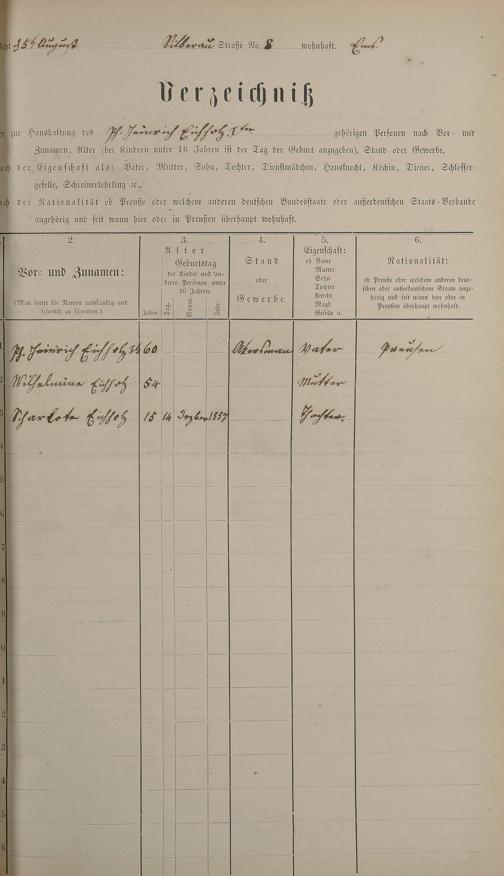 August Silberau Straße No. 8 wohnhaft. Ems.
Verzeichniß
zur Haushaltung des Ph. Heinrich Eichholz Iter gehörigen Personen nach Vor- und
Zunamen, Alter (bei Kindern unter 16 Jahren ist der Tag der Geburt anzugeben), Stand oder Gewerbe,
der Eigenschaft als: Vater, Mutter, Sohn, Tochter, Dienstmädchen, Hausknecht, Köchin, Diener, Schlosser-
geselle, Schreinerlehrling ꝛc.,
der Nationalität ob Preuße oder welchem anderen deutschen Bundesstaate oder außerdeutschen Staats-Verbande
angehörig und seit wann hier oder in Preußen überhaupt wohnhaft.
2. 3. 4. 5. 6.
Vor- und Zunamen:
(Man bittet die Namen vollständig und
leserlich zu schreiben.)
Alter
Geburtstag
der Kinder und an-
derer Personen unter
16 Jahren.
Jahre. Tag. Monat. Jahr.
Stand
oder
Gewerbe.
Eigenschaft:
ob Vater
Mutter
Sohn
Tochter
Knecht
Magd
Geselle ꝛc.
Nationalität:
ob Preuße oder welchem anderen deut-
schen oder außerdeutschen Staate ange-
hörig und seit wann hier oder in
Preußen überhaupt wohnhaft.
Ph. Heinrich Eichholz 60 Akersman Vater Preusen
2 Wilhelmine Eichholz 54 Mutter
3 Scharlote Eichholz 15 14 Dezber 1857 Tochter.
5
6
7
8
9
1
2
3
4
5
6